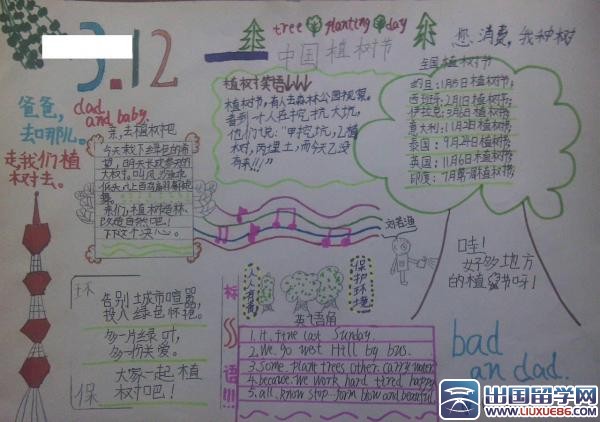 tree planting day
中国植树节
3.12
您消费,我种树
爸爸,
去哪儿。
走,我们植
树去。
dad
and baby.
亲,去植树吧
今天栽下绿色的希
望,明天长成参天的
大树。
亲们,植树造林,
改造自然吧!
下这个决心。
植树笑话↓↓↓
植树节,有人去森林公园
看到一人在挖坑,
他们说:“甲挖坑,乙植
树,丙埋土,而今天乙没
有来!!!”
全国植树节
约旦:1月15日植树节,
西班牙:2月1日植树节,
伊拉克:3月6日植树节
意大利:11月21日植树节
泰国:9月24日植树节
英国:11月6日植树节
印度:7月第一周植树节
哇!
好多地方
的植树节呀!
环
保
告别城市喧嚣,
投入绿色怀抱。
多一片绿叶,
多一份关爱。
大家一起植
树吧!
标
语!!!
人人有责
保护环境
英语角
1. it fine last Sunday.
2. We go west Hill by bus.
3. Some plant trees, other carry water
4. because we work hard tired happy
5. all know stop form blow and beautiful
bad
an dad.
出国留学网
www.liuxue86.com